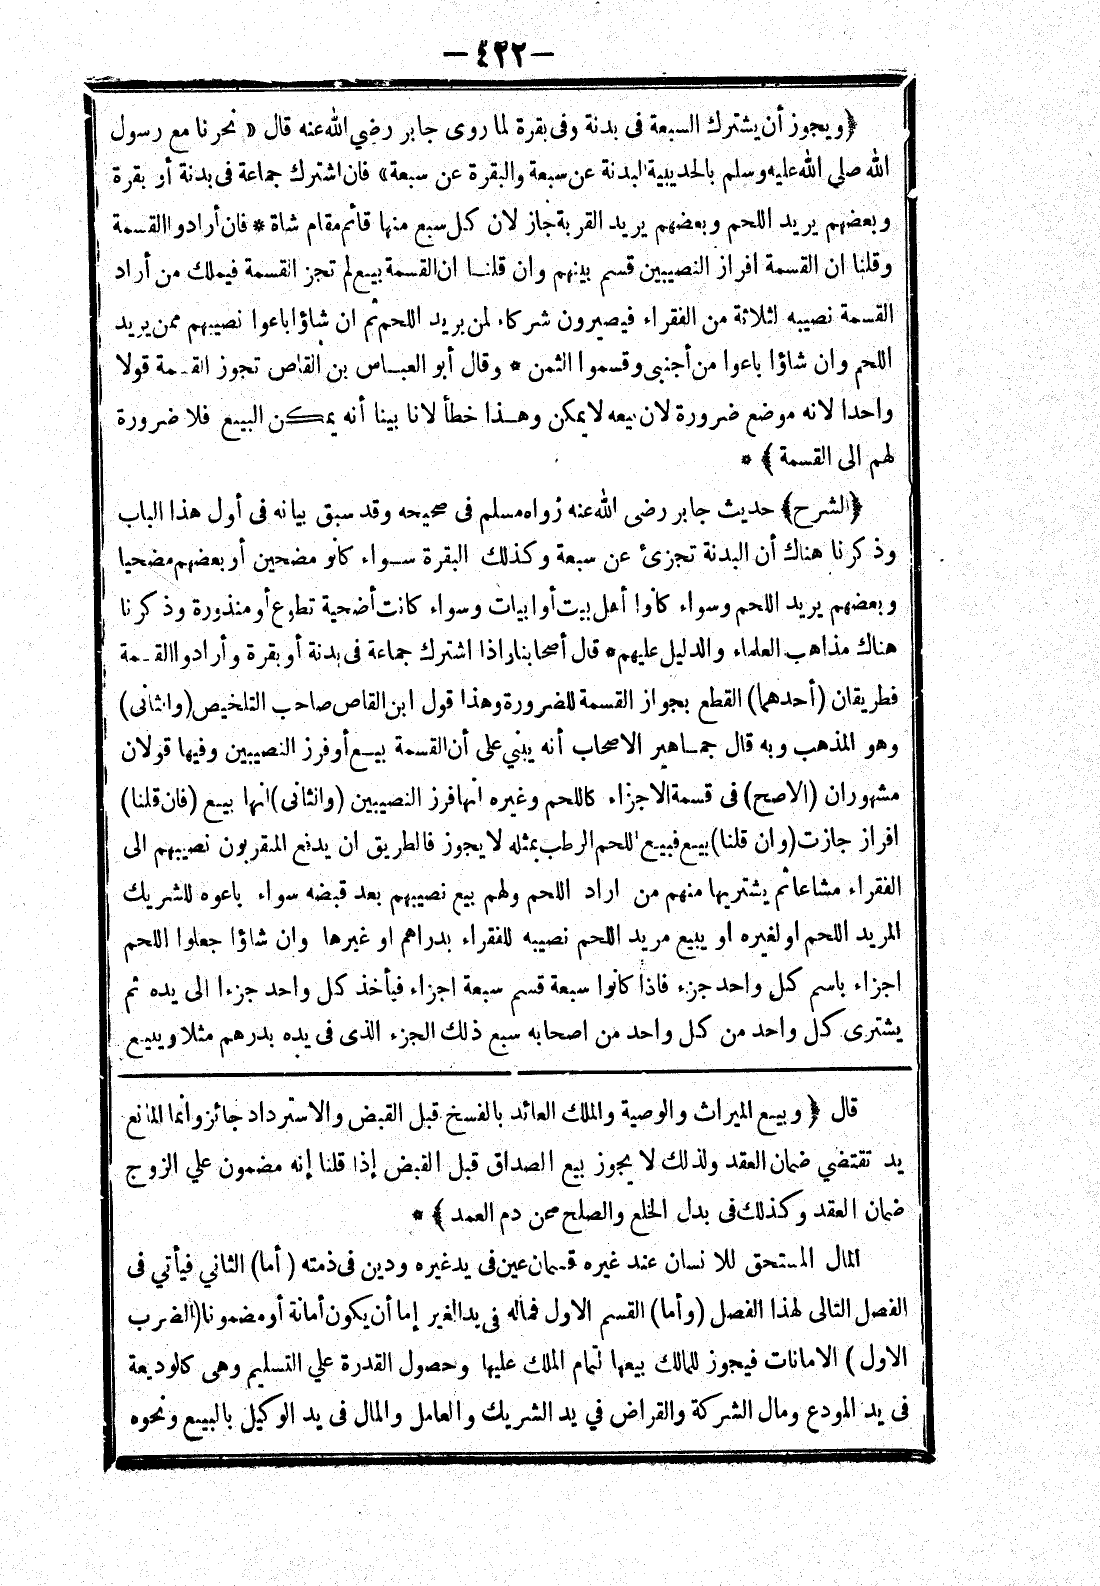 — ٤٢٢ —
﴿ويجوز أن يشترك السبعة فى بدنة وفى بقرة لما روى جابر رضي الله عنه قال « نحرنا مع رسول
الله صلي الله عليه وسلم بالحديبية البدنة عن سبعة والبقرة عن سبعة» فان اشترك جماعة فى بدنة أو بقرة
وبعضهم يريد اللحم وبعضهم يريد القربة جاز لان كل سبع منها قائم مقام شاة * فان أرادوا القسمة
وقلنا ان القسمة افراز النصيبين قسم بينهم وان قلنا ان القسمة بيع لم تجز القسمة فيملك من أراد
القسمة نصيبه لثلاثة من الفقراء فيصيرون شركاء لمن يريد اللحم ثم ان شاؤا باعوا نصيبهم ممن يريد
اللحم وان شاؤا باعوا من أجنبى وقسموا الثمن * وقال أبو العباس بن القاص تجوز القسمة قولا
واحدا لانه موضع ضرورة لان بيعه لا يمكن وهذا خطأ لانا بينا أنه يمكن البيع فلا ضرورة
لهم الى القسمة ﴾ *
﴿الشرح﴾ حديث جابر رضى الله عنه رواه مسلم فى صحيحه وقد سبق بيانه فى أول هذا الباب
وذكرنا هناك أن البدنة تجزئ عن سبعة وكذلك البقرة سواء كانو مضحين أو بعضهم مضحيا
وبعضهم يريد اللحم وسواء كانوا أهل بيت أو ابيات وسواء كانت أضحية تطوع أو منذورة وذكرنا
هناك مذاهب العلماء والدليل عليهم * قال أصحابنا اذا اشترك جماعة فى بدنة أو بقرة وأرادوا القسمة
فطريقان (أحدهما) القطع بجواز القسمة للضرورة وهذا قول ابن القاص صاحب التلخيص (والثانى)
وهو المذهب وبه قال جماهير الاصحاب أنه يبني على أن القسمة بيع أو فرز النصيبين وفيها قولان
مشهوران (الاصح) فى قسمة الاجزاء كاللحم وغيره انها فرز النصيبين (والثانى) انها بيع (فان قلنا)
افراز جازت (وان قلنا) بيع فبيع اللحم الرطب بمثله لا يجوز فالطريق ان يدفع المتقربون نصيبهم الى
الفقراء مشاعا ثم يشتريها منهم من اراد اللحم ولهم بيع نصيبهم بعد قبضه سواء باعوه للشريك
المريد اللحم او لغيره او يبيع مريد اللحم نصيبه للفقراء بدراهم او غيرها وان شاؤا جعلوا اللحم
اجزاء باسم كل واحد جزء فاذا كانوا سبعة قسم سبعة اجزاء فيأخذ كل واحد جزءا الى يده ثم
يشترى كل واحد من كل واحد من اصحابه سبع ذلك الجزء الذى فى يده بدرهم مثلا ويبيع
قال ﴿ وبيع الميراث والوصية والملك العائد بالفسخ قبل القبض والاسترداد جائز وانما المانع
يد تقتضي ضمان العقد ولذلك لا يجوز بيع الصداق قبل القبض إذا قلنا إنه مضمون علي الزوج
ضمان العقد وكذلك فى بدل الخلع والصلح عن دم العمد ﴾ *
المال المستحق للانسان عند غيره قسمان عين فى يد غيره ودين فى ذمته (أما) الثاني فيأتي فى
الفصل التالى لهذا الفصل (وأما) القسم الاول فماله فى يد الغير إما أن يكون أمانة أو مضمونا (الضرب
الاول) الامانات فيجوز للمالك بيعها لتمام الملك عليها وحصول القدرة علي التسليم وهى كالوديعة
فى يد المودع ومال الشركة والقراض في يد الشريك والعامل والمال فى يد الوكيل بالبيع ونحوه